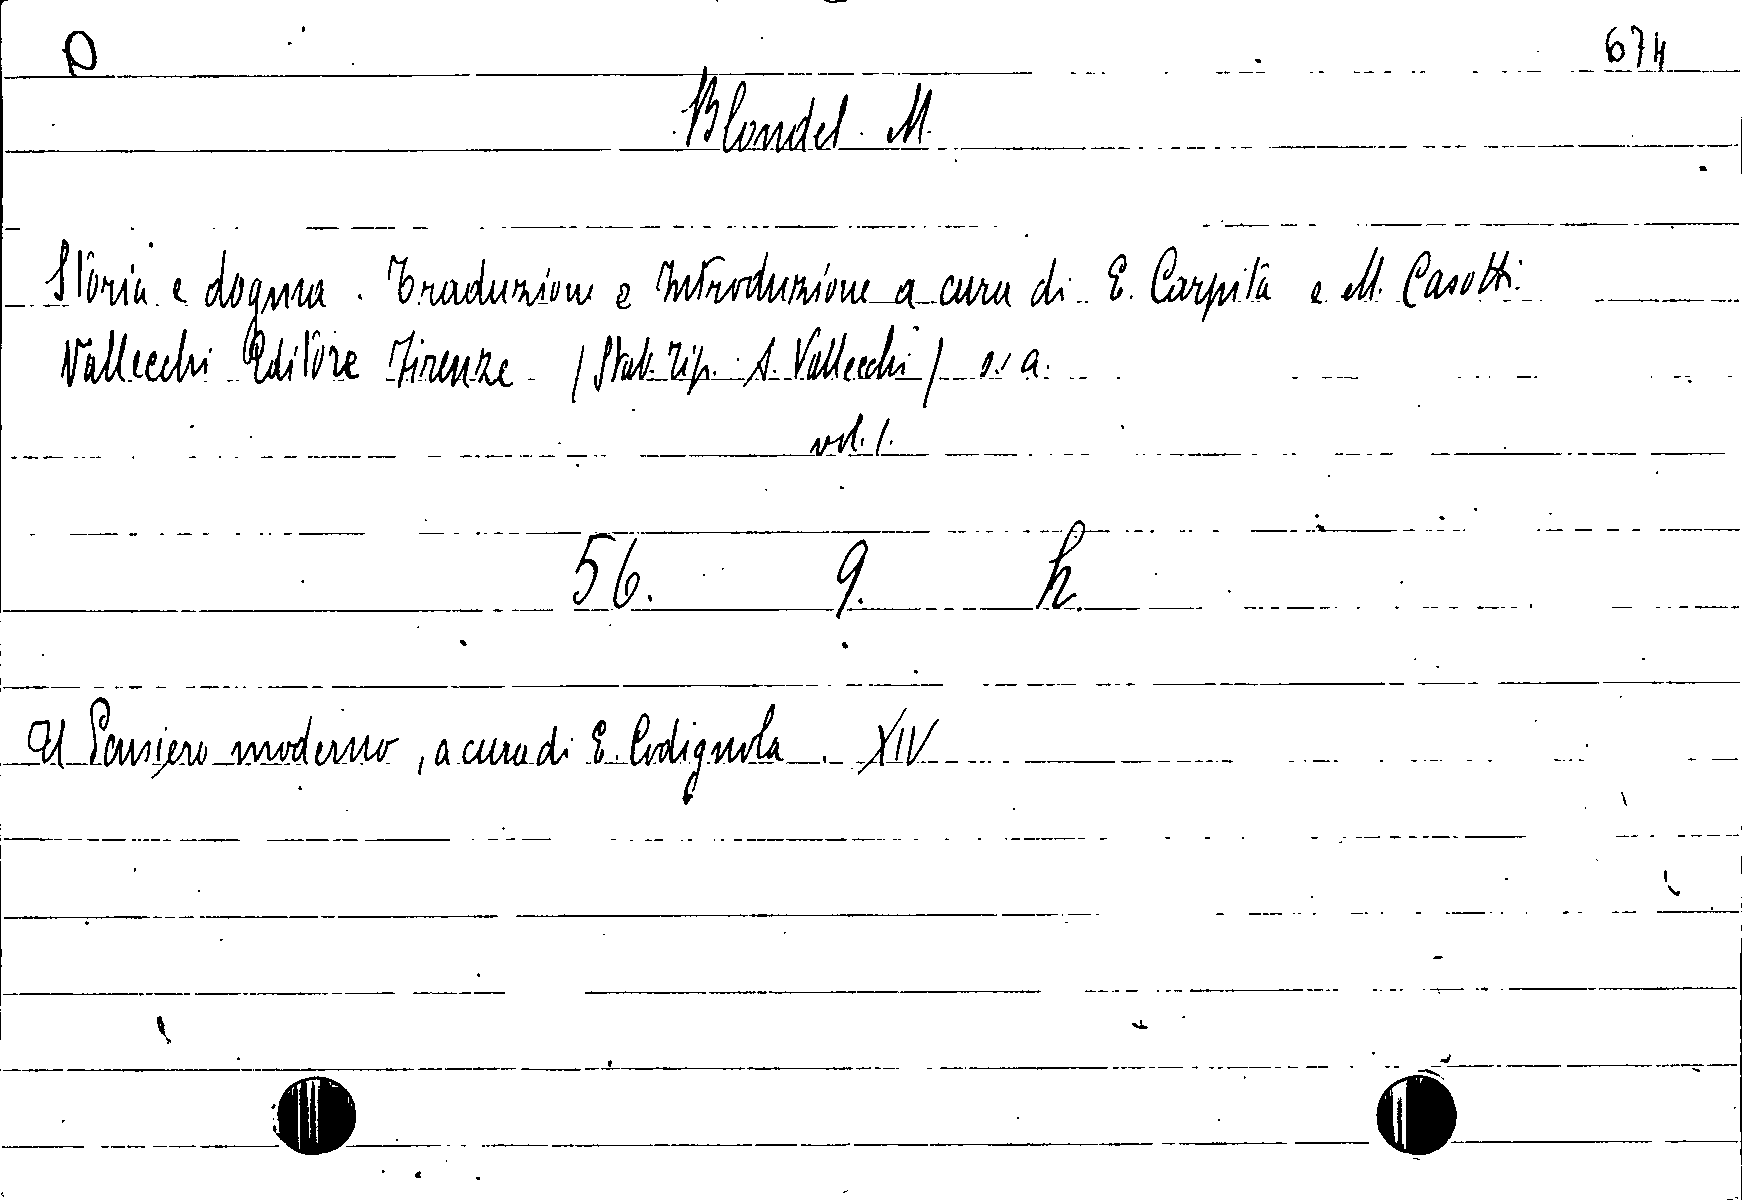 D 674
Blondel. M.
Storia e dogma. Traduzione e Introduzione a cura di E. Carpita e M. Casotti.
Vallecchi Editore Firenze (Stab. Tip. A. Vallecchi) s. a.
vol. 1.
56. 9. h.
Il Pensiero moderno, a cura di E. Codignola. XIV